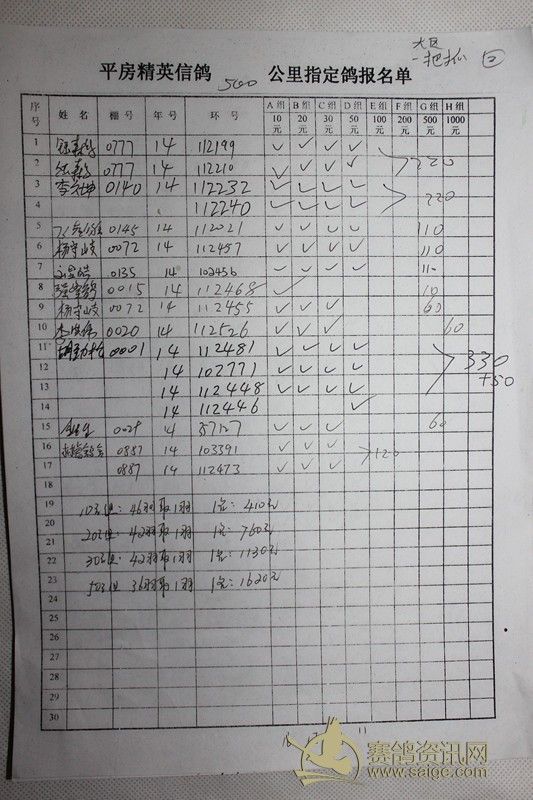 大区
一把抓 ②
平房精英信鸽 500 公里指定鸽报名单
序号 姓名 棚号 年号 环号 A组10元 B组20元 C组30元 D组50元 E组100元 F组200元 G组500元 H组1000元
1 0777 14 112199 ✓ ✓ ✓ ✓
2 0777 14 112210 ✓ ✓ ✓ ✓ 220
3 0140 14 112232 ✓ ✓ ✓ ✓
4 112240 ✓ ✓ ✓ ✓ 220
5 0145 14 112021 ✓ ✓ ✓ ✓ 110
6 杨守岐 0072 14 112457 ✓ ✓ ✓ ✓ 110
7 0135 14 102456 ✓ ✓ ✓ ✓ 110
8 0015 14 112468 ✓ 10
9 杨守岐 0072 14 112455 ✓ ✓ ✓ 60
10 0020 14 112526 ✓ ✓ ✓ 60
11 0001 14 112481 ✓ ✓ ✓ ✓
12 14 102771 ✓ ✓ ✓ ✓ 330
13 14 112448 ✓ ✓ ✓ ✓ +50
14 14 112446 ✓
15 14 57127 ✓ ✓ ✓ 60
16 0887 14 103391 ✓ ✓ ✓ 120
17 0887 14 112473 ✓ ✓ ✓
18
19 10元组: 46羽取1羽 1名: 410元
20
21 20元组: 42羽取1羽 1名: 760元
22 30元组: 42羽取1羽 1名: 1130元
23 50元组 36羽取1羽 1名: 1620元
24
25
26
27
28
29
30
赛鸽资讯网
www.saige.com